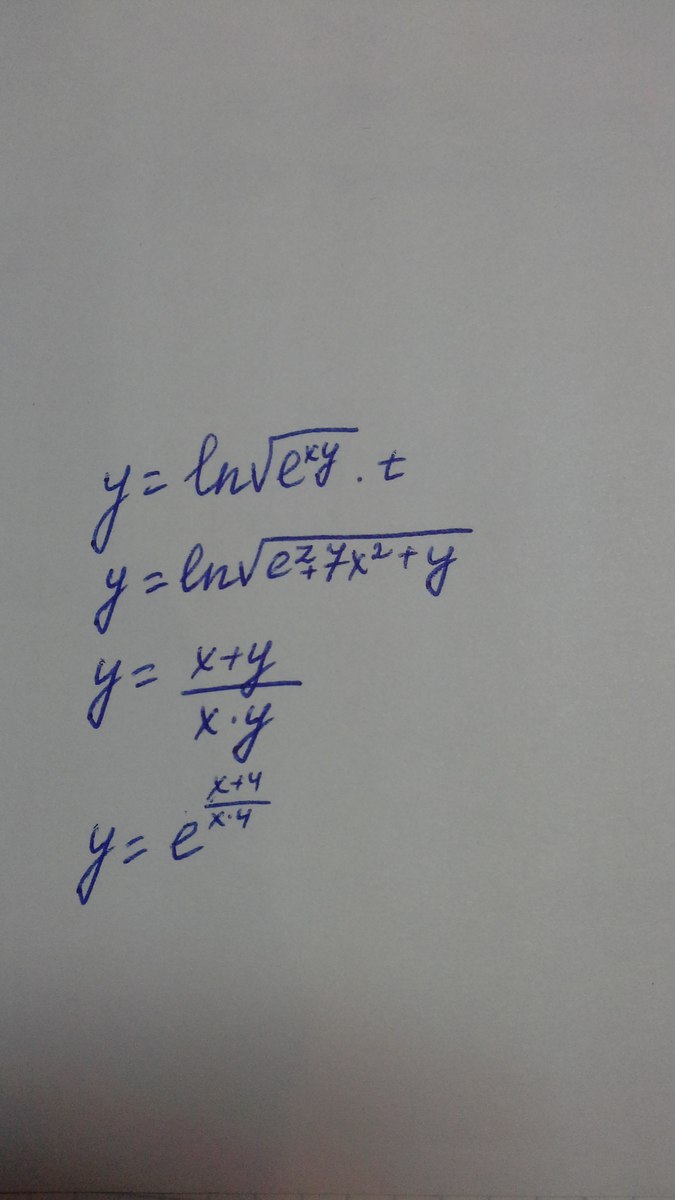 y = ln√(e^{xy}) · t
y = ln√(e^z + 7x² + y)
y = (x+y)/(x·y)
y = e^{(x+4)/(x·4)}